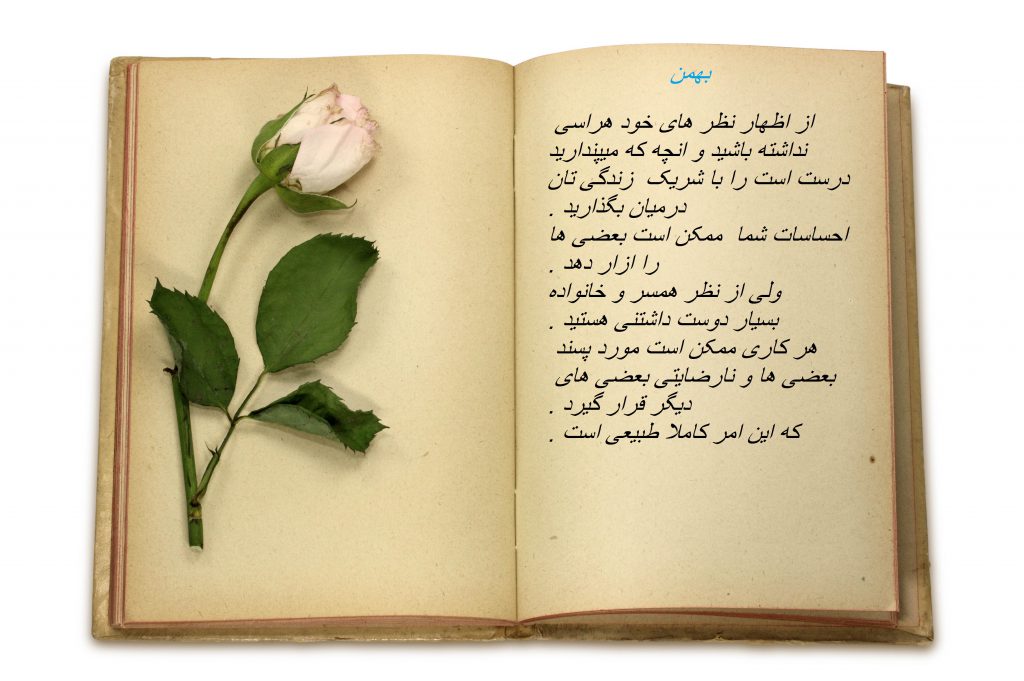 بهمن
از اظهار نظر های خود هراسی
نداشته باشید و انچه که میپندارید
درست است را با شریک زندگی تان
درمیان بگذارید .
احساسات شما ممکن است بعضی ها
را ازار دهد .
ولی از نظر همسر و خانواده
بسیار دوست داشتنی هستید .
هر کاری ممکن است مورد پسند
بعضی ها و نارضایتی بعضی های
دیگر قرار گیرد .
که این امر کاملا طبیعی است .